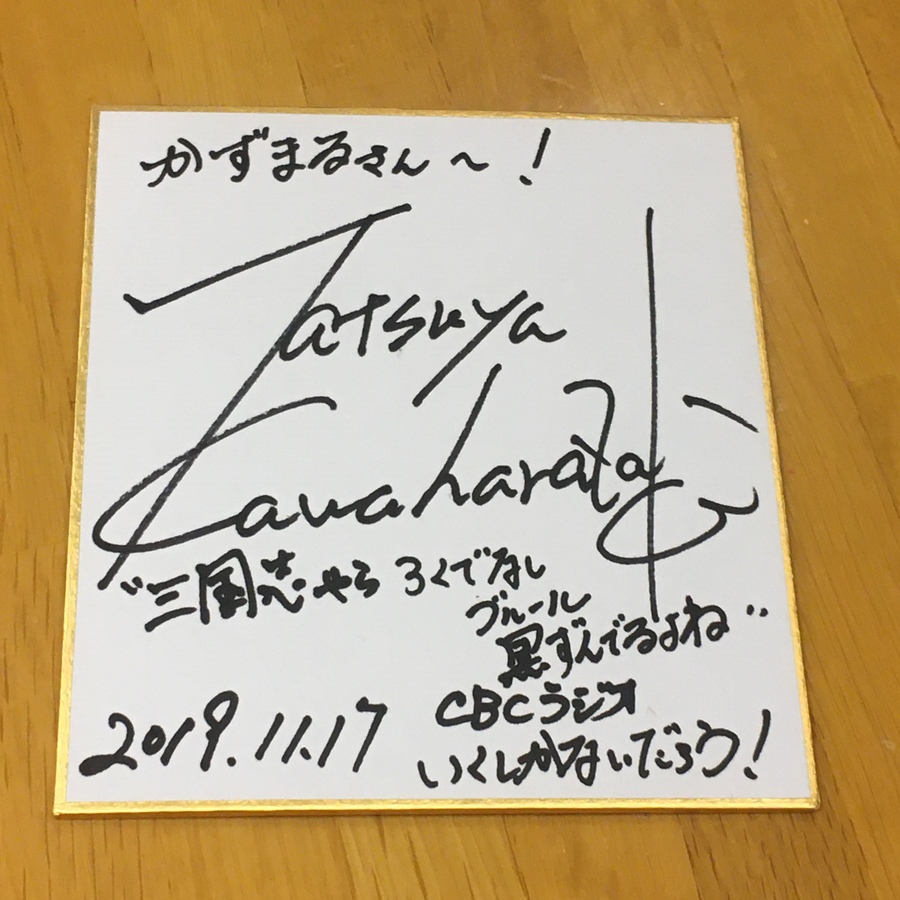 かずまるさん～！
Tatsuya
Kawaharada
"三国志やろ ろくでなし
ブルール
黒ずんでるよね"
CBCラジオ
2019.11.17
いくしかないだろう！